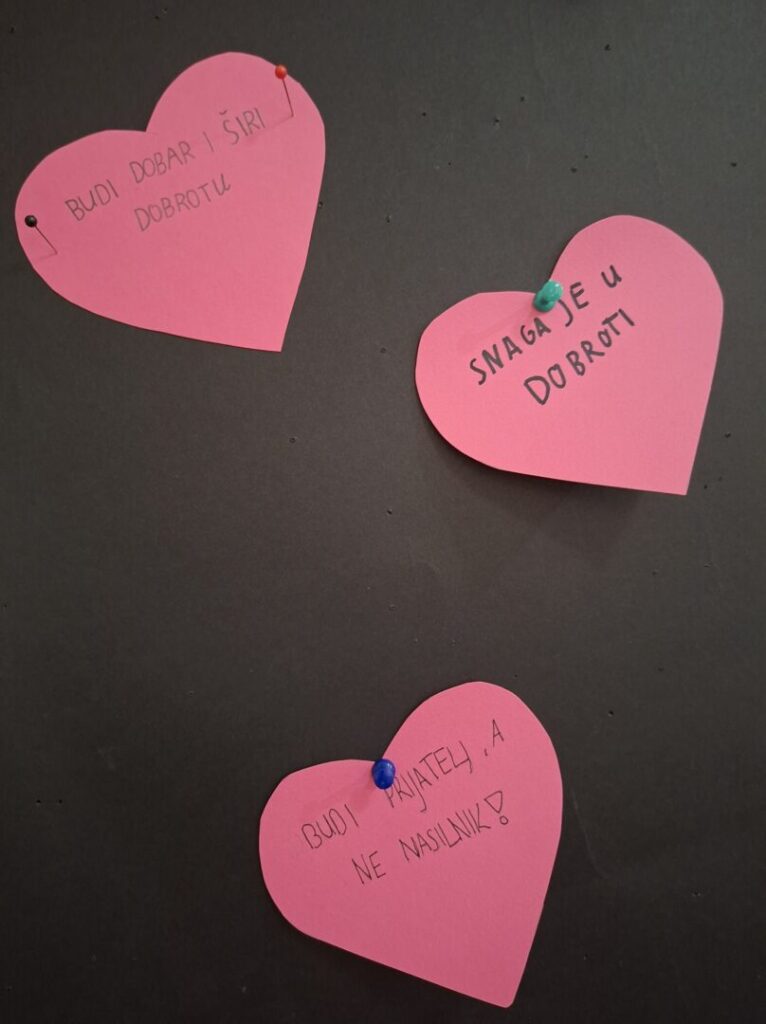 BUDI DOBAR I ŠIRI
DOBROTU
SNAGA JE U
DOBROTI
BUDI PRIJATELJ, A
NE NASILNIK!